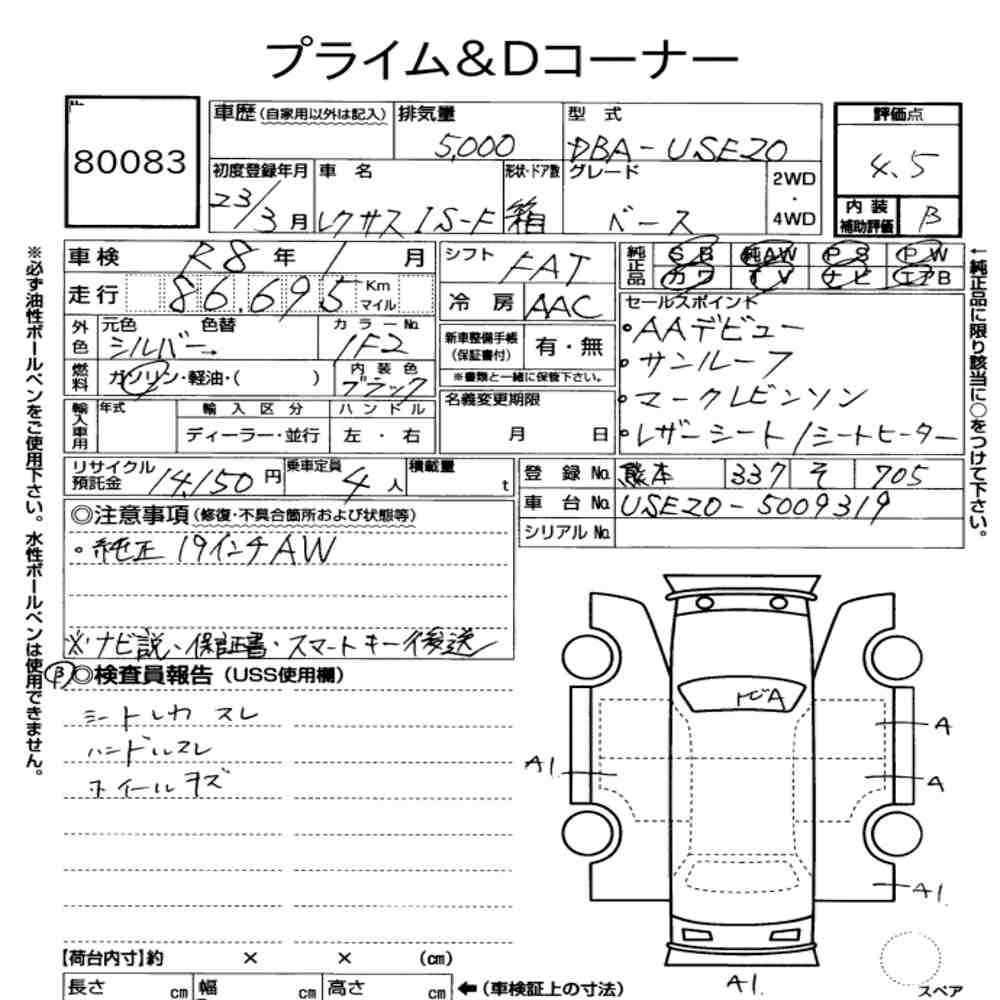 プライム&Dコーナー
80083
車歴(自家用以外は記入) 排気量 型式 評価点
5,000 DBA-USE20 4.5
初度登録年月 車名 形状・ドア数 グレード 2WD・4WD 内装補助評価 B
23/3月 レクサス IS-F 箱 ベース
車検 R8年 1月 シフト FAT 純正品 SB 純AW PS PW
カワ TV ナビ エアB
走行 86,695 Km マイル 冷房 AAC セールスポイント
外色 元色 色替 カラーNo. 新車整備手帳(保証書付) 有・無 ・AAデビュー
シルバー→ 1F2 ※書類と一緒に保管下さい。 ・サンルーフ
燃料 ガソリン・軽油・( ) 内装色 ブラック 名義変更期限 ・マークレビンソン
輸入車用 年式 輸入区分 ハンドル 月 日 ・レザーシート/シートヒーター
ディーラー・並行 左・右
リサイクル預託金 14,150円 乗車定員 4人 積載量 t 登録No. 熊本 337 そ 705
車台No. USE20-5009319
シリアルNo.
◎注意事項(修復・不具合箇所および状態等)
・純正19インチAW
※ナビ説、保証書・スマートキー後送
B ◎検査員報告(USS使用欄)
シートレカ スレ
ハンドルスレ
ホイールキズ
トビA
A
A1.
A
A1.
A1.
スペア
【荷台内寸】約 × × (cm)
長さ cm 幅 cm 高さ cm ←(車検証上の寸法)
※必ず油性ボールペンをご使用下さい。水性ボールペンは使用できません。
←純正品に限り該当に○をつけて下さい。